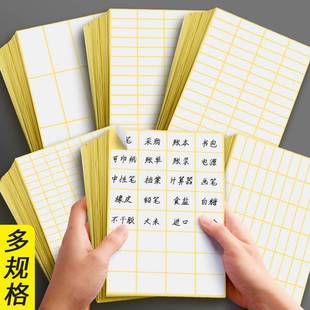 笔 采购 账本 书包
可印刷 账单 账录 电源
中性笔 档案 计算器 画笔
橡皮 铅笔 食盐 白糖
不干胶 大米 进口
多规格